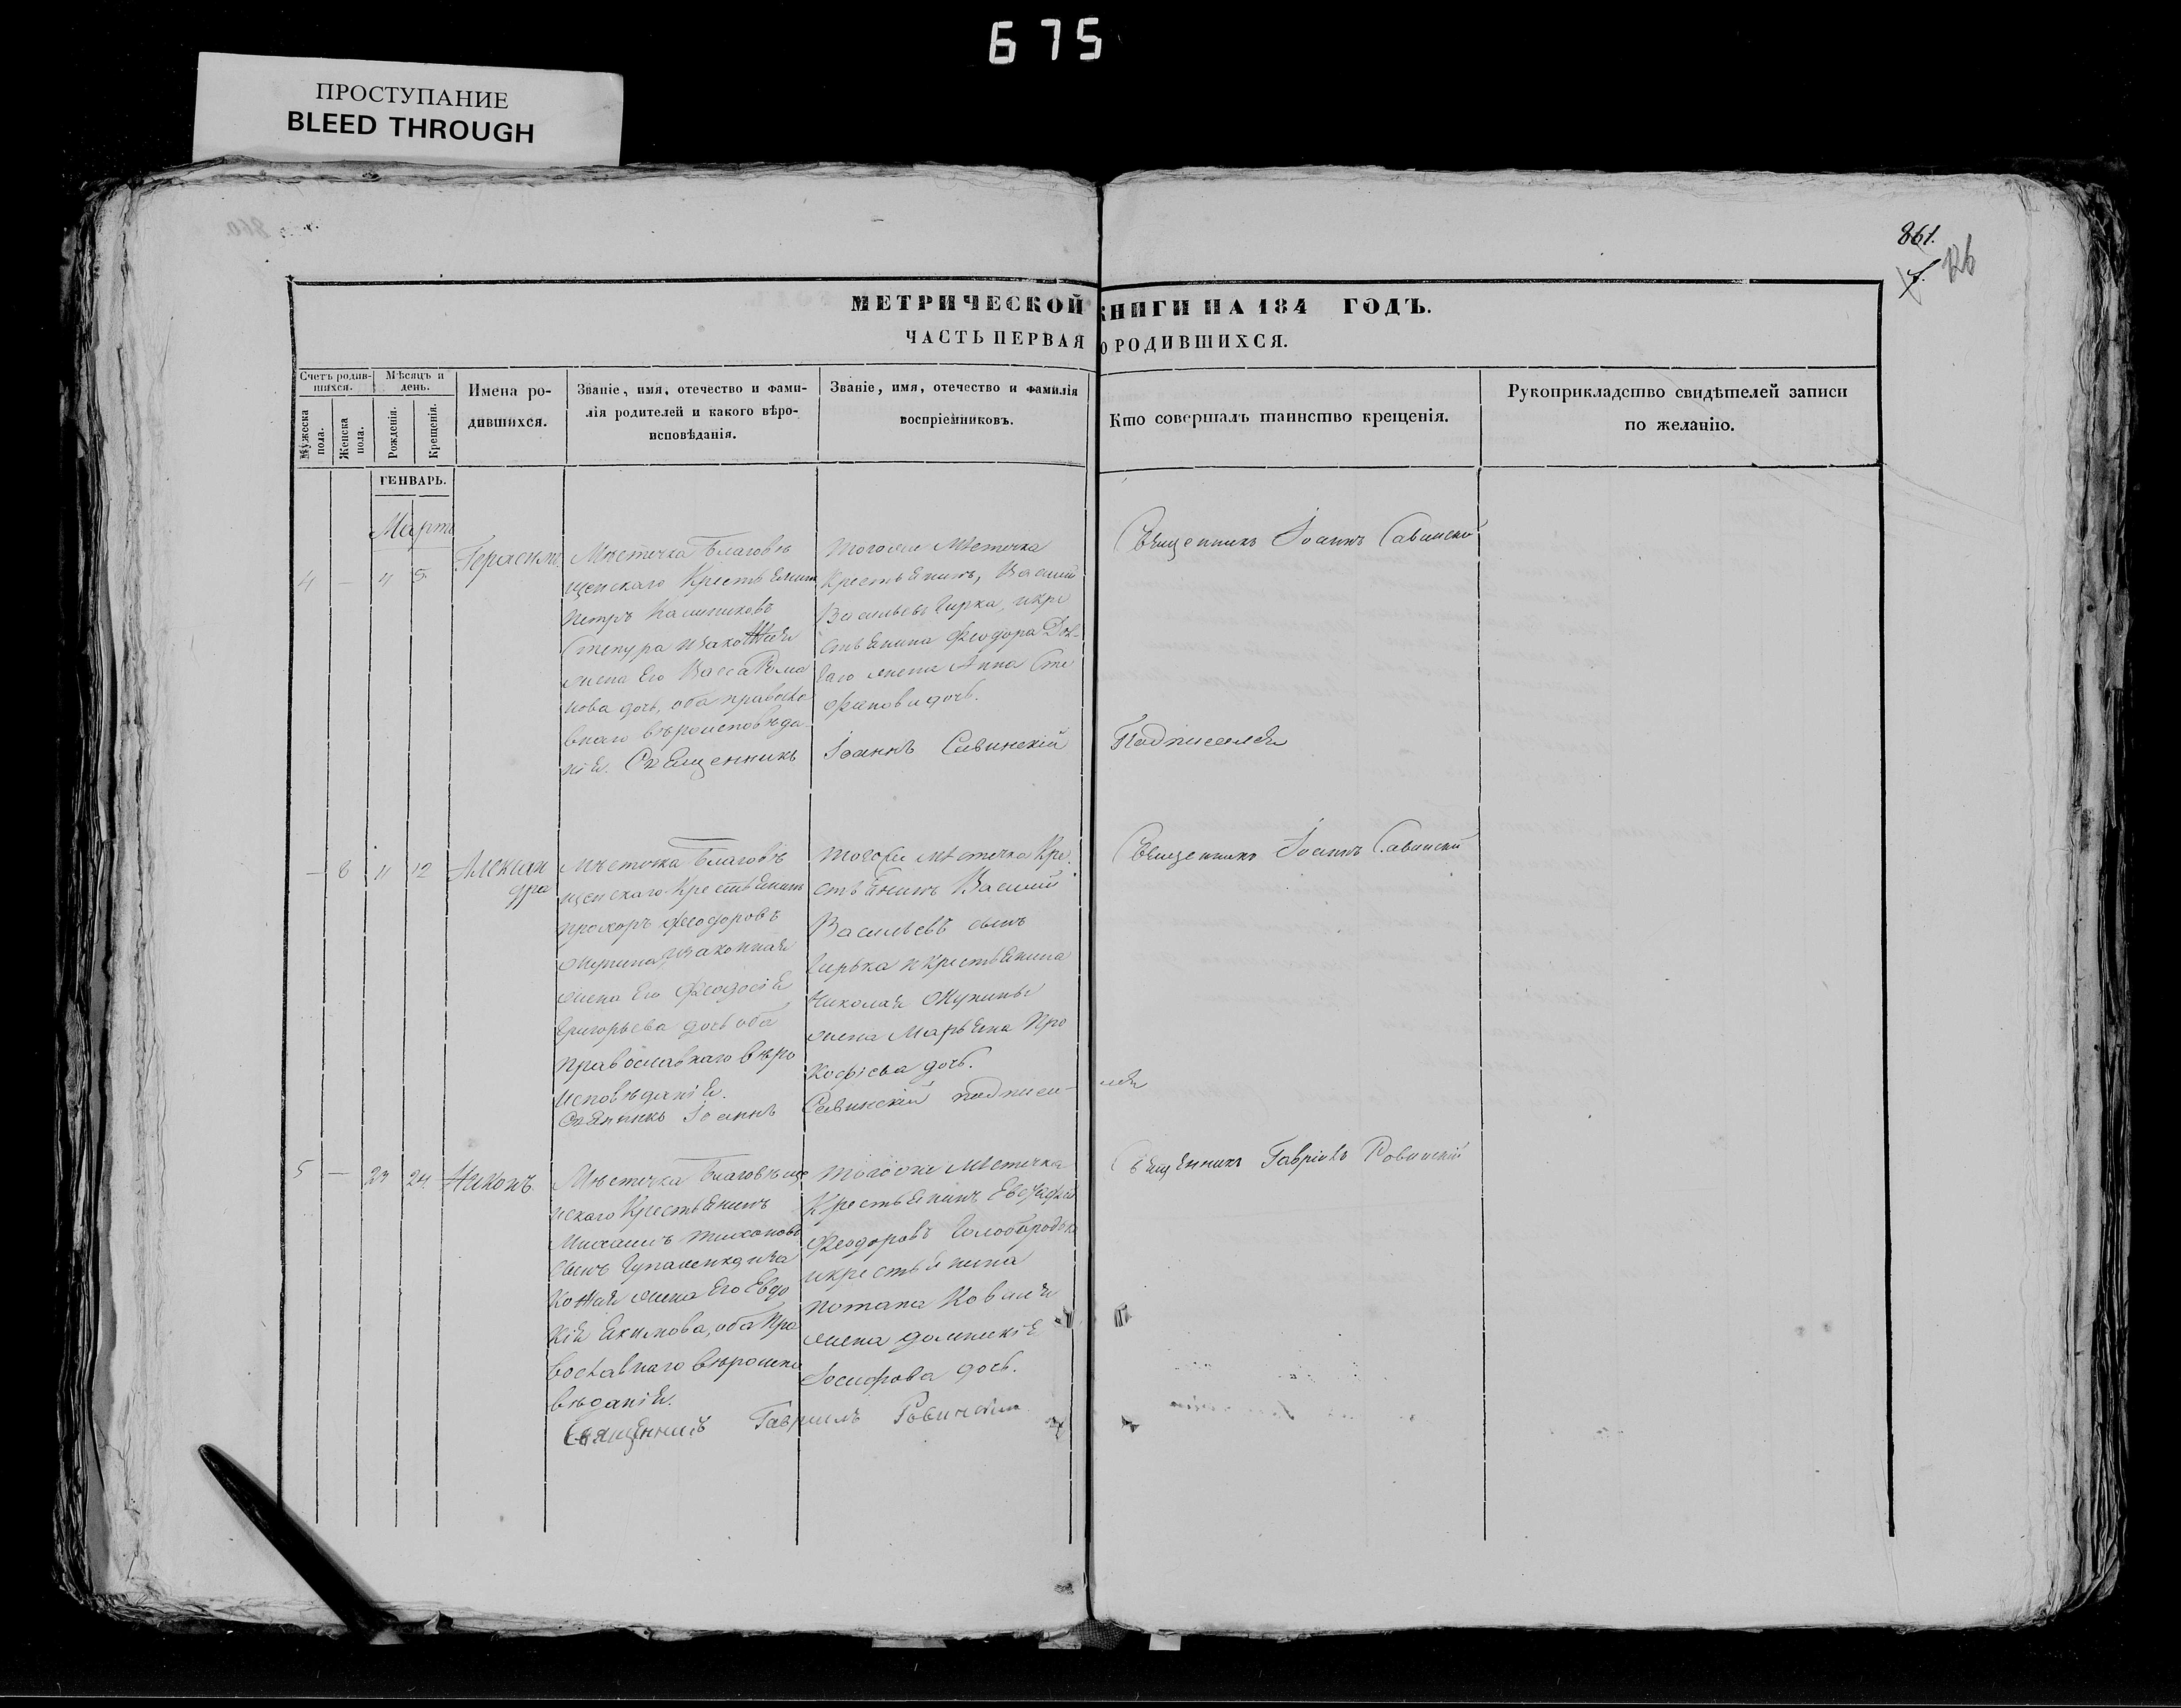 675
ПРОСТУПАНИЕ
BLEED THROUGH
861.
126
МЕТРИЧЕСКОЙ КНИГИ НА 184 ГОДЪ.
ЧАСТЬ ПЕРВАЯ О РОДИВШИХСЯ.
Счетъ родив-
шихся.
Мѣсяцъ и
день.
Мужеска
пола.
Женска
пола.
Рожденія.
Крещенія.
Имена ро-
дившихся.
Званіе, имя, отечество и фами-
лія родителей и какого вѣро-
исповѣданія.
Званіе, имя, отечество и фамилія
воспріемниковъ.
Кто совершалъ таинство крещенія.
Рукоприкладство свидѣтелей записи
по желанію.
ГЕНВАРЬ.
Мартъ
4 — 4 5
Мѣстечка Благовѣ
щенскаго Крестьянинъ
Петръ Калиниковъ
Степура изаконная
жена Его Васса Рома
нова дочь, оба правосла
внаго вѣроисповѣда
нія. Священникъ Іоаннъ Савинскій Подписался
тогоже Мѣстечка
Крестьянинъ, Василій
Васильевъ Гирка, икре
стьянина Феодора
жена Анна Сте
фанова дочь.
Священникъ Іоаннъ Савинскій
— 8 11 12
Алексан
дра
Мѣстечка Благовѣ
щенскаго Крестьянинъ
Прохоръ Феодоровъ
изаконная
жена Его Феодосія
Григорьева дочь оба
Православнаго вѣро
исповѣданія.
Іоаннъ Савинскій подписался
тогоже мѣстечка Кре
стьянинъ Василій
Васильевъ сынъ
Гирька и крестьянина
Николая
жена Марьяна Про
кофіева дочь.
Священникъ Іоаннъ Савинскій
5 — 23 24 Никонъ.
Мѣстечка Благовѣще
нскаго Крестьянинъ
Михаилъ Тихоновъ
сынъ
жена Его Евдо
кія Екимова, оба Пра
вославнаго вѣроиспо
вѣданія.
Священникъ Гавріилъ Ровинскій
тогоже мѣстечка
Крестьянинъ
Феодоровъ Голобородька
икрестьянина
Потапа Коваля
жена
Іосифова дочь.
Священникъ Гавріилъ Ровинскій